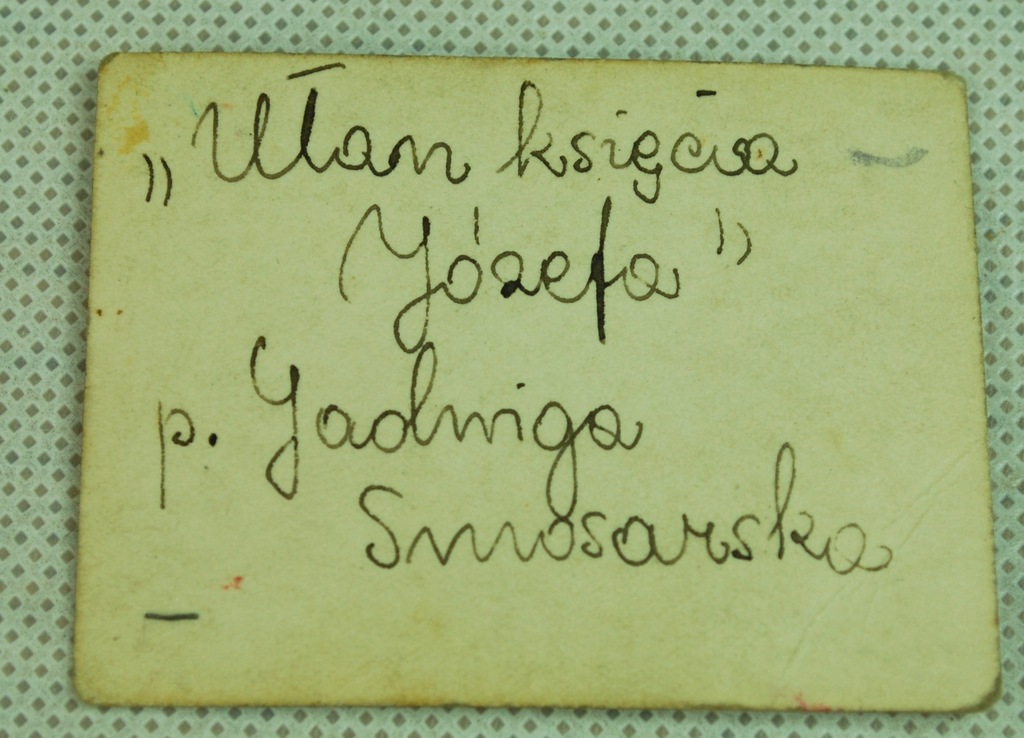 „Ułan księcia
Józefa”
p. Jadwiga
Smosarska